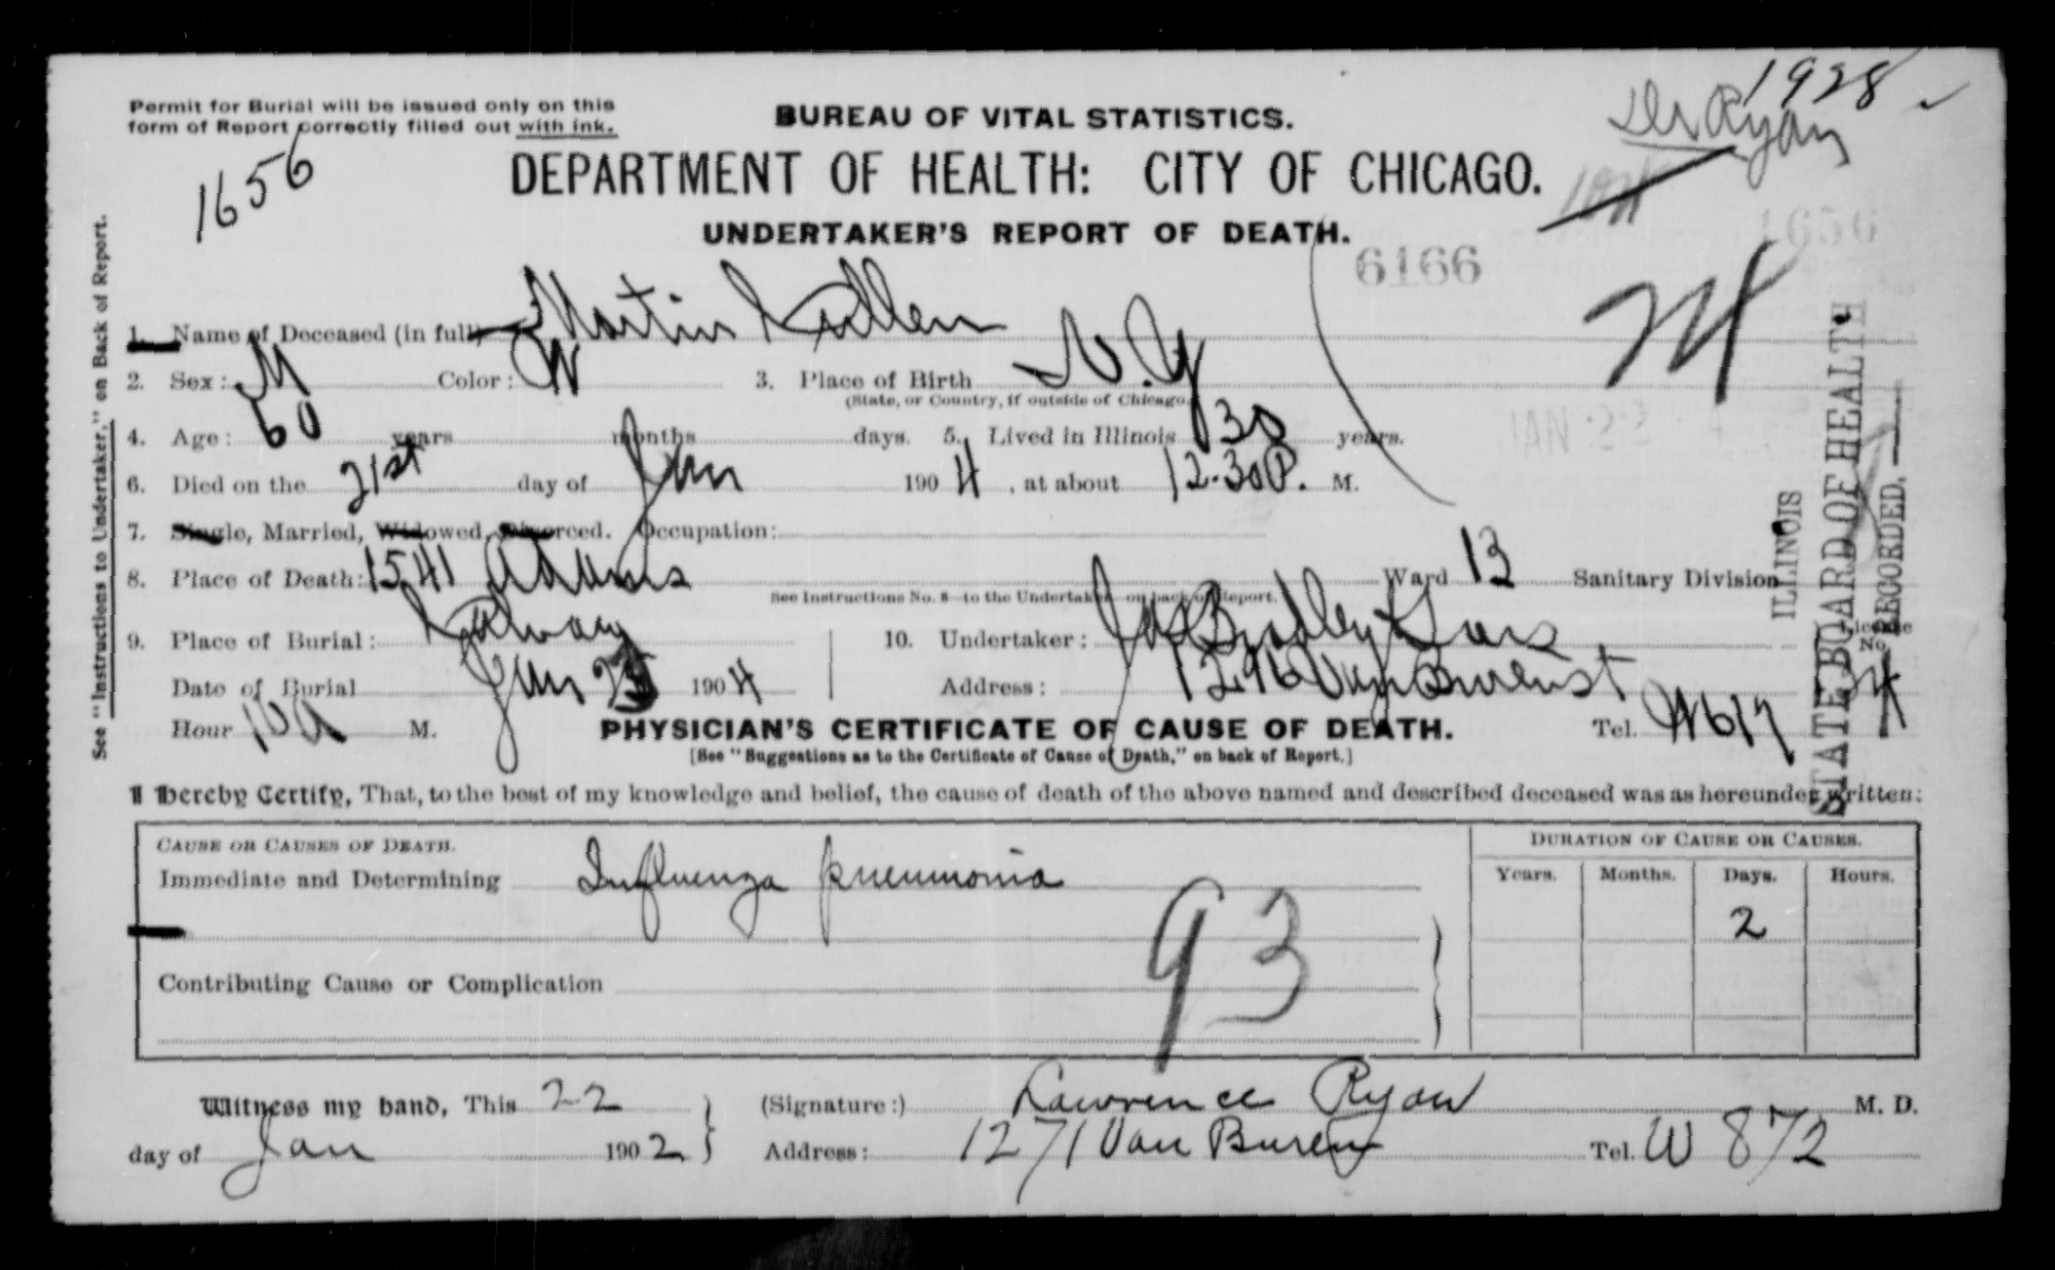 1928
Permit for Burial will be issued only on this
form of Report correctly filled out with ink.
BUREAU OF VITAL STATISTICS.
Dr Ryan
1656
DEPARTMENT OF HEALTH: CITY OF CHICAGO.
UNDERTAKER'S REPORT OF DEATH.
1656
6166
See "Instructions to Undertaker," on Back of Report.
1. Name of Deceased (in full) Martin
2. Sex: M Color: W 3. Place of Birth N.Y
(State, or Country, if outside of Chicago.)
4. Age: 60 years months days. 5. Lived in Illinois 30 years.
6. Died on the 21st day of Jan 1904, at about 12.30 P. M.
7. Single, Married, Widowed, Divorced. Occupation:
8. Place of Death: 1541 Adams Ward 13 Sanitary Division
See Instructions No. 8 to the Undertaker on back of Report.
9. Place of Burial: Calvary 10. Undertaker: Jas Bradley & Sons
License No.
Date of Burial Jan 1904 Address: 1296 Van Buren st
Hour 10 a M. PHYSICIAN'S CERTIFICATE OF CAUSE OF DEATH. Tel. W 617
[See "Suggestions as to the Certificate of Cause of Death," on back of Report.]
ILLINOIS
STATE BOARD OF HEALTH
RECORDED,
I hereby Certify, That, to the best of my knowledge and belief, the cause of death of the above named and described deceased was as hereunder written:
CAUSE OR CAUSES OF DEATH. DURATION OF CAUSE OR CAUSES.
Immediate and Determining Influenza pneumonia Years. Months. Days. Hours.
2
93
Contributing Cause or Complication
Witness my hand, This 22 (Signature:) Lawrence Ryan M. D.
day of Jan 1902 Address: 1271 Van Buren Tel. W 872